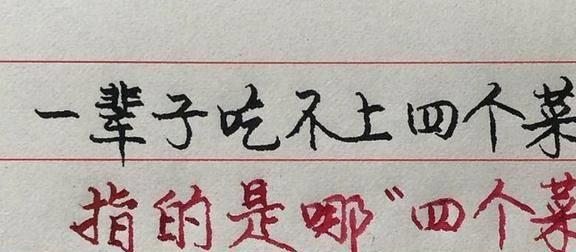 一辈子吃不上四个菜
指的是哪"四个菜